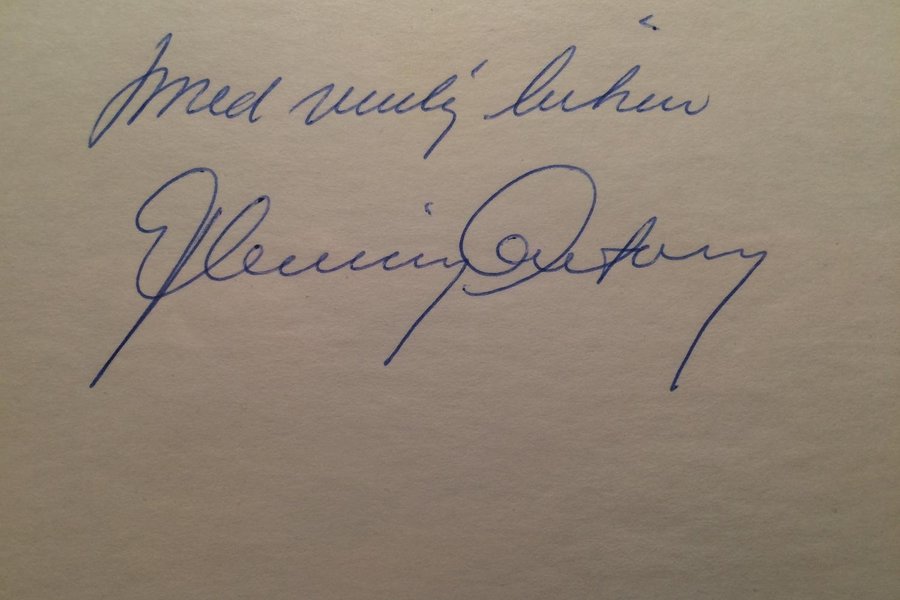 Med venlig hilsen
Flemming Antony